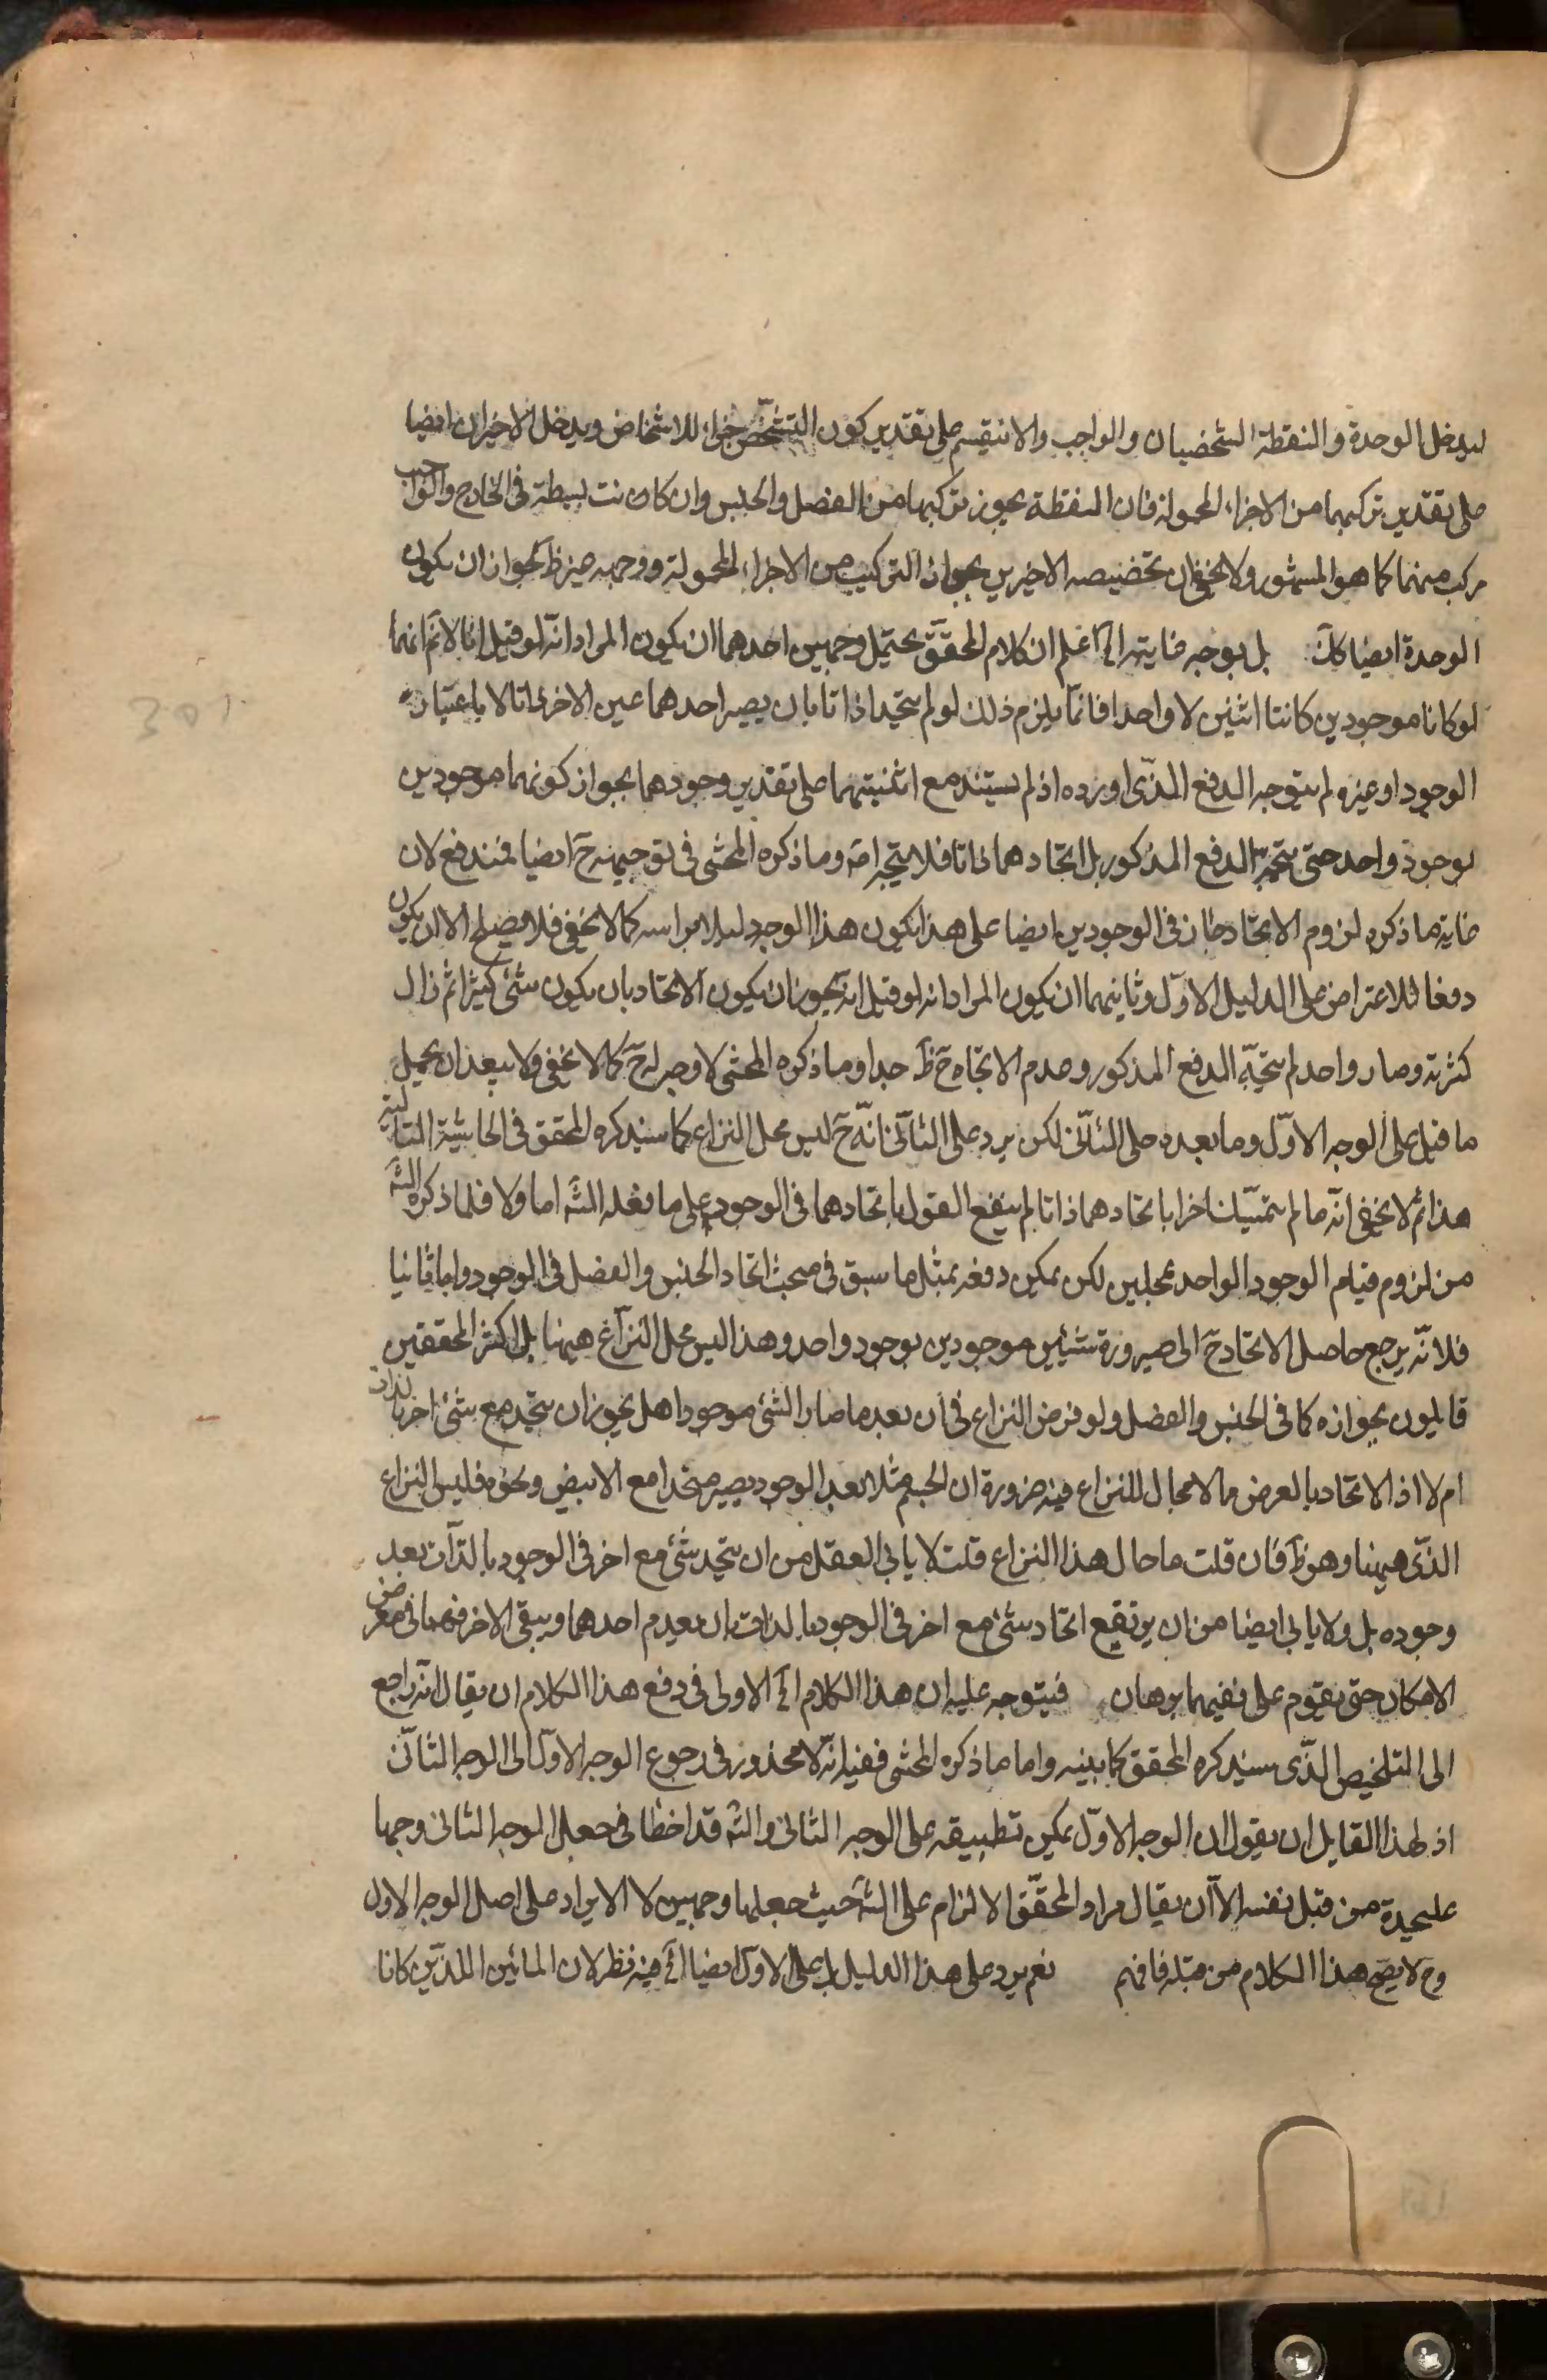 ليدخل الوحدة والنقطة الشخصيان والواجب والا نيقسم على تقدير كون التشخص جزاء للاشخاص ويدخل الاخيران ايضا
على تقدير تركيبهما من الاجزاء المحمولة فان النقطة يجوز تركيبها من الفصل والجنس وان كانت بسيطة فى الخارج والواجب
مركب منهما كما هو المشهور ولا يخفى ان تخصيصه الاخيرين بجواز التركيب من الاجزاء المحمولة ووجهه غير ظ لجواز ان يكون
الوحدة ايضا كك بل بوجه غايته الخ اعلم ان كلام المحقق يحتمل وجهين احدهما ان يكون المراد انه لو قيل انا لا نم انهما
لو كانا موجودين كانتا اثنين لا واحدا فانما يلزم ذلك لو لم يتحدا ذاتا بان يصير احدهما عين الاخر ذاتا لا باعتبار
الوجود او غيره لم يتوجه الدفع الذى اورده اذ لم يستند منع اثنينيتهما على تقدير وجودهما بجواز كونهما موجودين
بوجود واحد حتى يتجه الدفع المذكور بل اتحادهما ذاتا فلا يتجه اصه وما ذكره المحشى فى توجيهه ح ايضا مندفع لان
غاية ما ذكره لزوم الاتحاد فى الوجودين ايضا على هذا يكون هذا الوجه دليلا براسه كما لا يخفى فلا يصلح الا ان يكون
دفعا للاعتراض على الدليل الاول وثانيهما ان يكون المراد انه لو قيل انه يجوز ان يكون الاتحاد بان يكون شئ كثيرا ثم زال
كثرته وصار واحد لم يتجه الدفع المذكور وعدم الاتجاه ح ظ جدا وما ذكره المحشى لا وجه له ح كما لا يخفى ولا يبعد ان يحمل
ما قيل على الوجه الاول وما بعده على الثانى لكن يرد على الثانى انه ح ليس محل النزاع كما سيذكره المحقق فى الحاشية التالية
هذا ثم لا يخفى انه ما لم يتمسك اخرا باتحادهما ذاتا لم ينفع القول باتحادهما فى الوجود على ما فعله الشه اما اولا فلما ذكره الشه
من لزوم قيام الوجود الواحد بمحلين لكن يمكن دفعه بمثل ما سبق فى مبحث اتحاد الجنس والفصل فى الوجود واما ثانيا
فلانه يرجع حاصل الاتحاد ح الى صيرورة شيئين موجودين بوجود واحد وهذا ليس محل النزاع ههنا بل اكثر المحققين
قايلون بجوازه كما فى الجنس والفصل ولو فرض النزاع فى ان بعد ما صار الشئ موجودا هل يجوز ان يتحد مع شئ اخر بالذات
ام لا اذ الاتحاد بالعرض مما لا مجال للنزاع فيه ضرورة ان الجسم مثلا بعد الوجود يصير متحدا مع الابيض ونحوه فليس النزاع
الذى ههنا وهو ظ فان قلت ما حال هذا النزاع قلت لا يابى العقل من ان يتحد شئ مع اخر فى الوجود بالذات بعد
وجوده بل ولا يابى ايضا من ان يرتفع اتحاد شئ مع اخر فى الوجود بالذات بان يعدم احدهما ويبقى الاخر فهما فى معرض
الامكان حتى يقوم على نفيهما برهان فيتوجه عليه ان هذا الكلام الخ الاولى فى دفع هذا الكلام ان يقال انه راجع
الى التلخيص الذى سيذكره المحقق كما بينه واما ما ذكره المحشى ففيه انه لا محذور فى رجوع الوجه الاول الى الوجه الثانى
اذ لهذا القايل ان يقول ان الوجه الاول يمكن تطبيقه على الوجه الثانى والشه قد اخطا فى جعل الوجه الثانى وجها
عليحدة من قبل نفسه الا ان يقال مراد المحقق الالزام على الشه حيث جعلها وجهين لا الايراد على اصل الوجه الاول
وح لا يصح هذا الكلام من قبله فافهم نعم يرد على هذا الدليل بل على الاول ايضا الخ فيه نظر لان المائين اللذين كانا